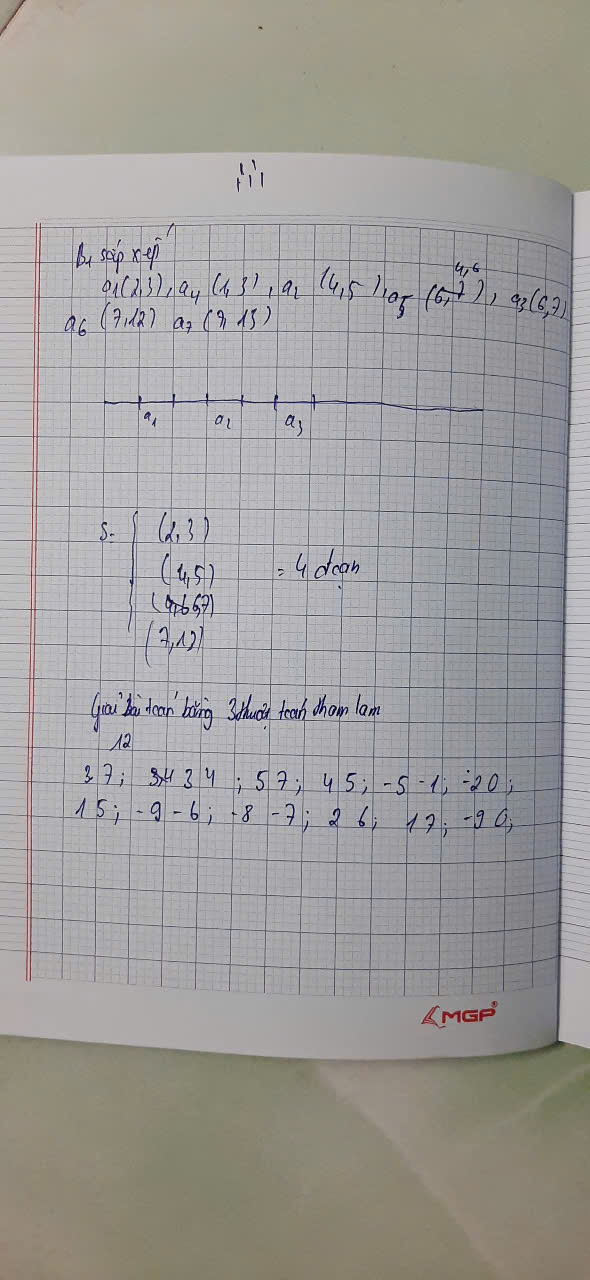 B1 sắp xếp
a1(2,3), a4 (1,3), a2 (4,5), a5 (6,7) 4,6, a3(6,7)
a6 (7,12) a7 (9,13)
a1 a2 a3
S = (2,3)
(4,5) = 4 đoạn
6,7)
(7,12)
Giải bài toán bằng 3 thuật toán tham lam
12
3 7; 3 4; 5 7; 4 5; -5 -1; -2 0;
1 5; -9 -6; -8 -7; 2 6; 1 7; -9 0;
MGP